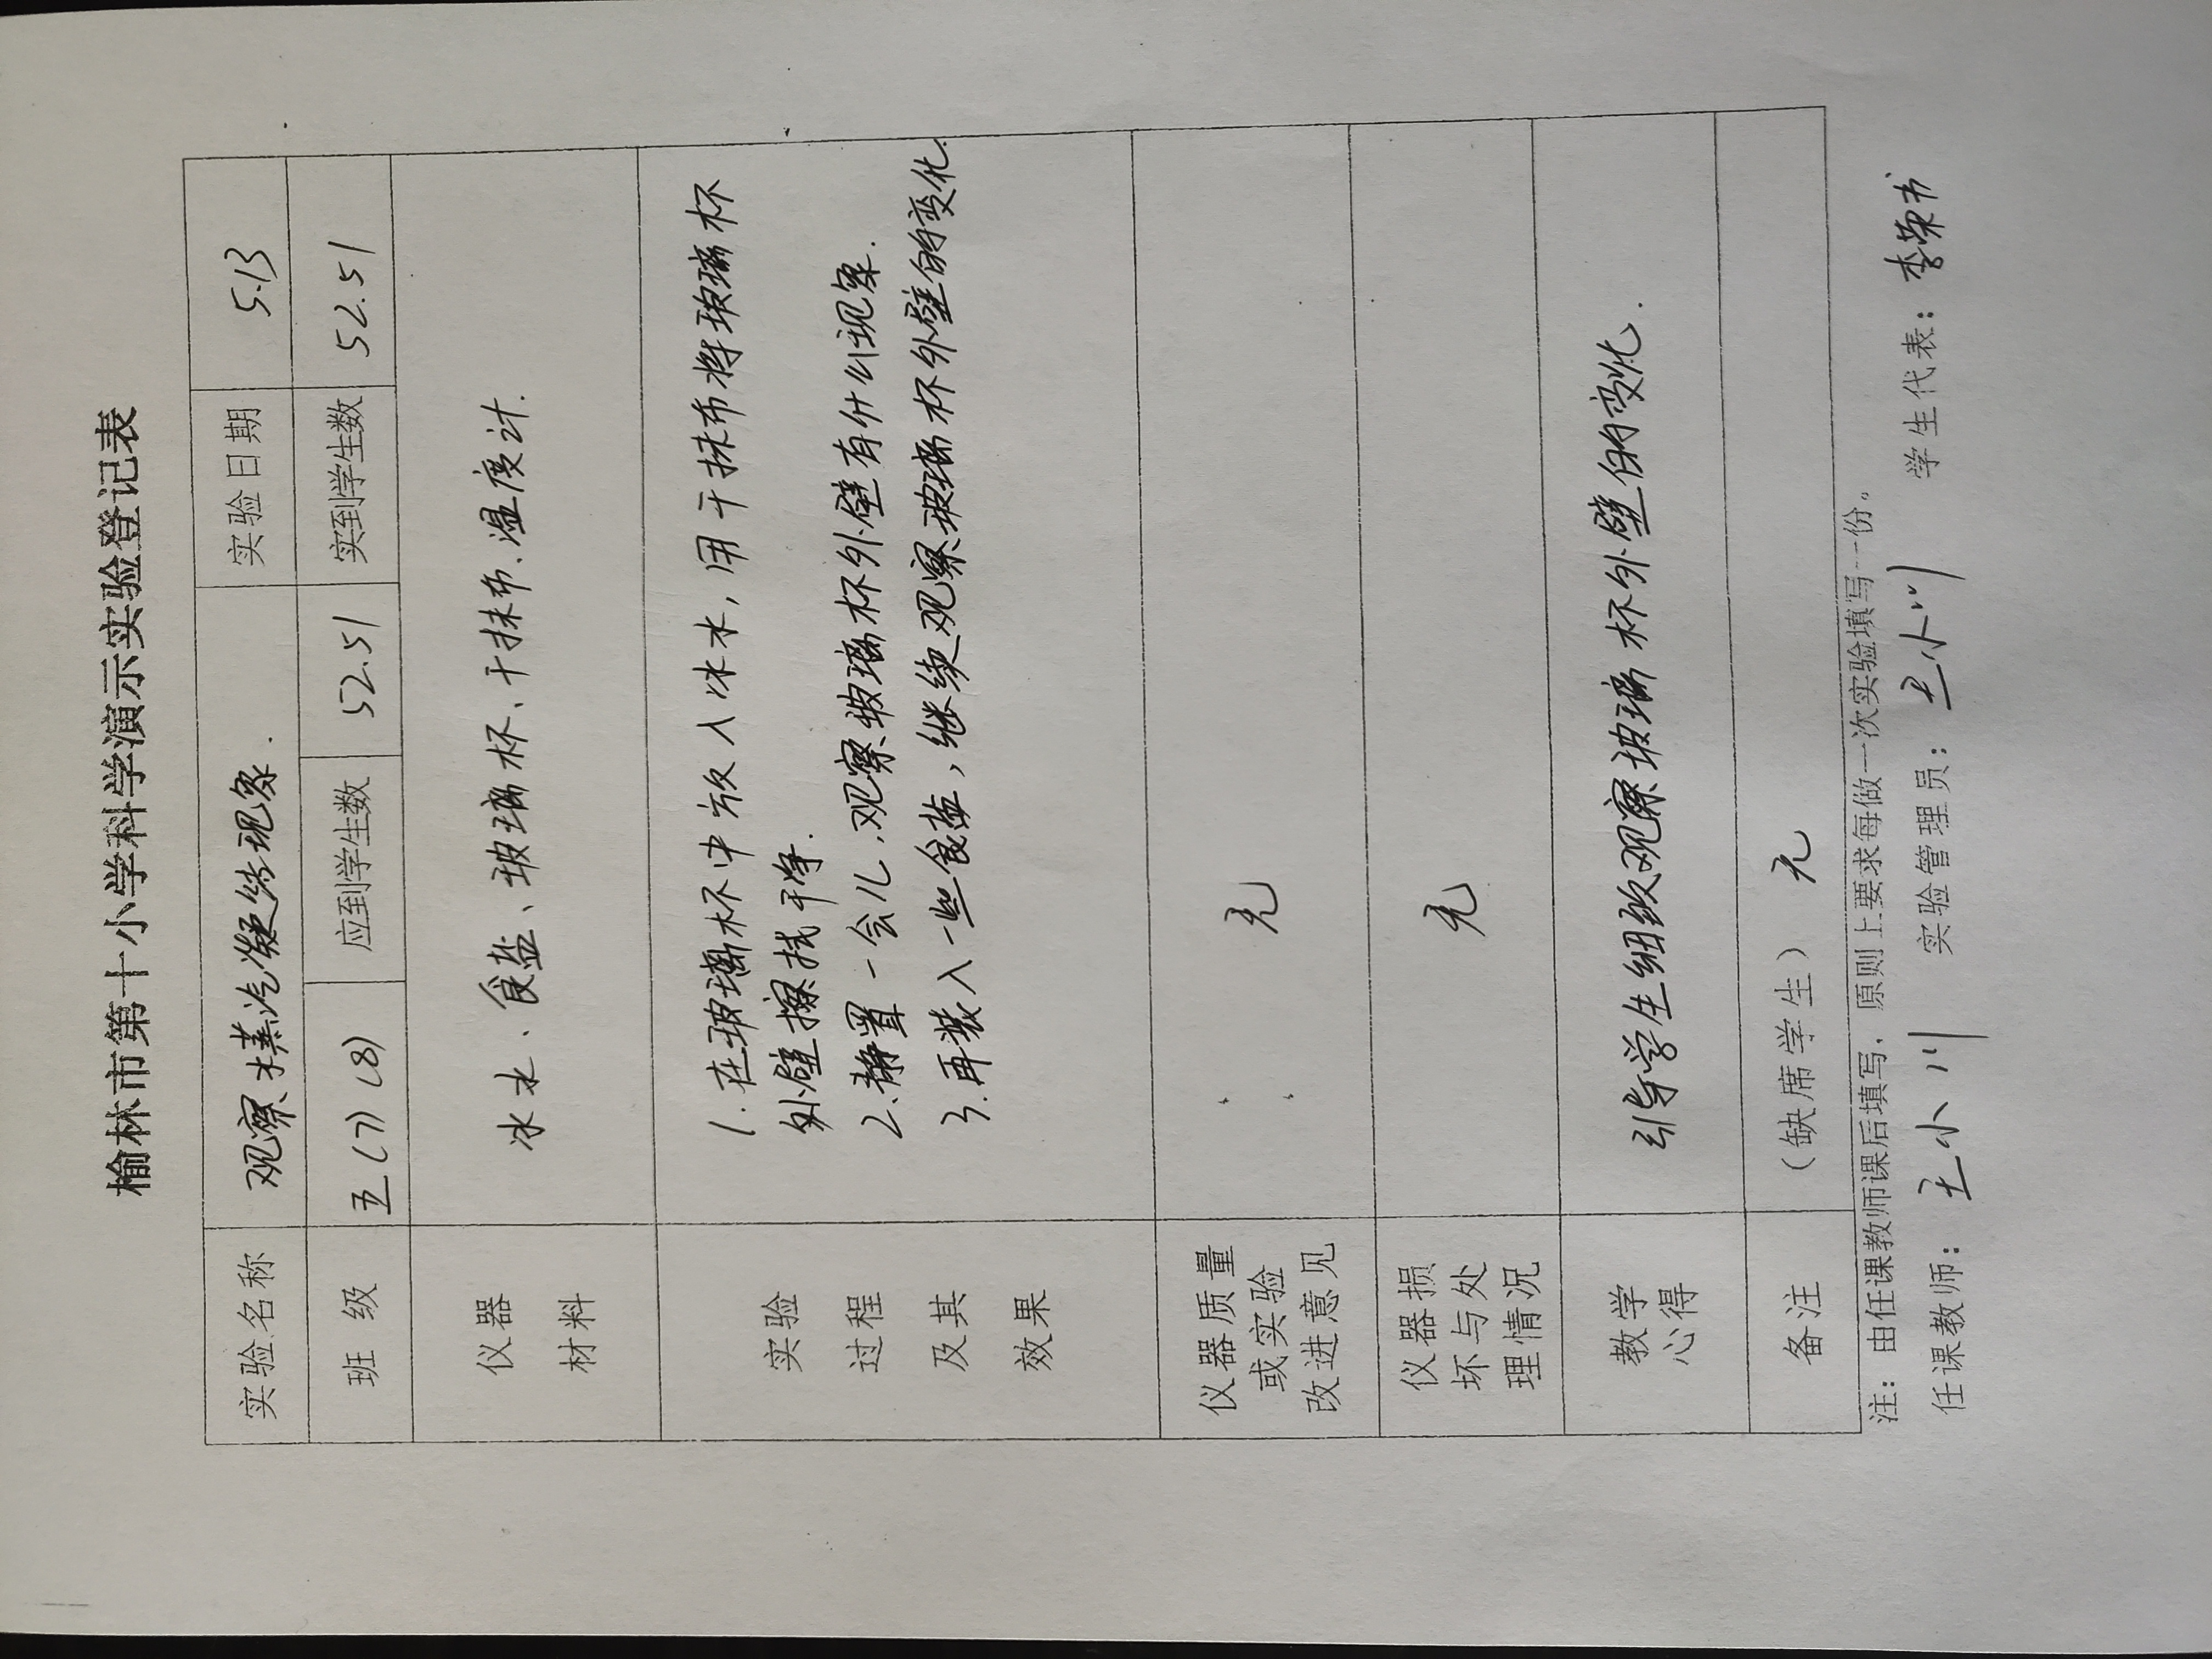 榆林市第十小学科学演示实验登记表
实验名称 观察水蒸汽凝结现象. 实验日期 5.13
班 级 五(7)(8) 应到学生数 52.51 实到学生数 52.51
仪器
材料
冰水、食盐、玻璃杯、干抹布.温度计.
实验
过程
及其
效果
1.在玻璃杯中放入冰水,用干抹布将玻璃杯
外壁擦拭干净.
2.静置一会儿,观察玻璃杯外壁有什么现象.
3.再装入一些食盐,继续观察玻璃杯外壁的变化.
仪器质量
或实验
改进意见
无
仪器损
坏与处
理情况
无
教学
心得
引导学生细致观察玻璃杯外壁的变化.
备注 (缺席学生) 无
注:由任课教师课后填写,原则上要求每做一次实验填写一份。
任课教师: 王小川 实验管理员: 王小川 学生代表: 李荣书